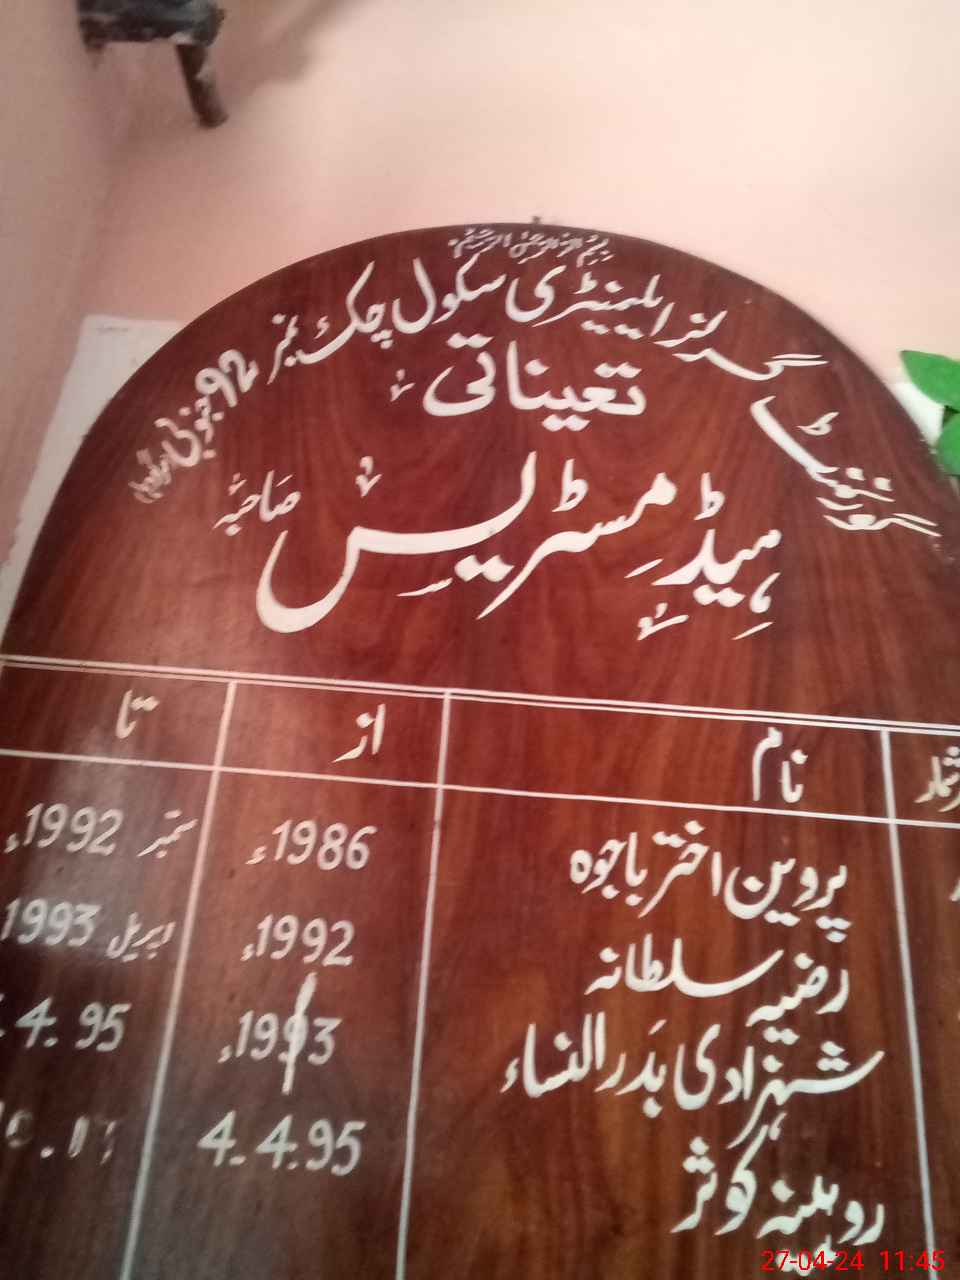 بسم اللہ الرحمن الرحیم
گورنمنٹ گرلز ایلیمنٹری سکول چک نمبر 92 جنوبی
تعیناتی
ہیڈ مسٹریس صاحبہ
نام از تا
پروین اختر باجوہ 1986ء ستمبر 1992ء
رضیہ سلطانہ 1992ء اپریل 1993
شہزادی بدر النساء 1993ء 4. 95
روہینہ کوثر 4.4.95
27-04-24 11:45